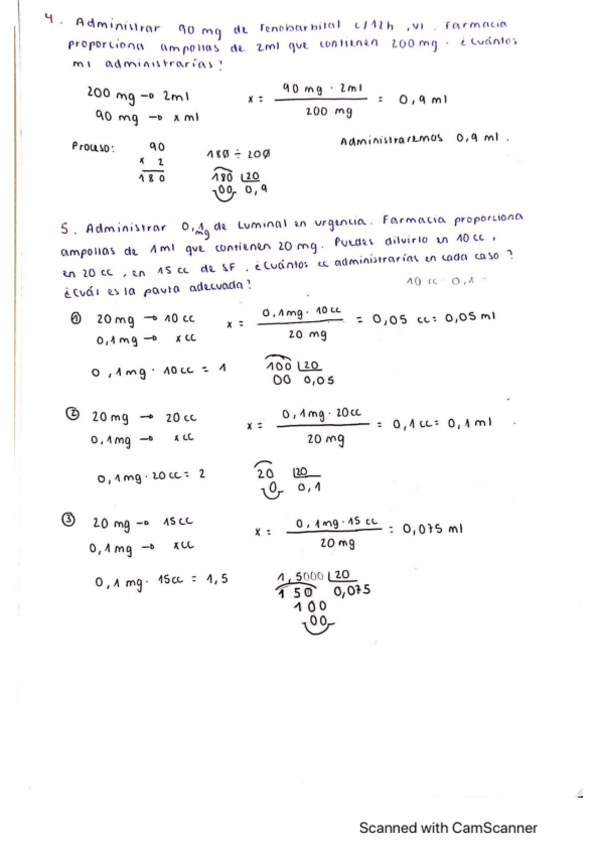 4. Administrar 90 mg de Fenobarbital c/12h, vi. Farmacia
proporciona ampollas de 2ml que contienen 200 mg. ¿Cuántos
ml administrarías?
200 mg → 2ml
90 mg → x ml
x = 90 mg · 2ml / 200 mg = 0,9 ml
Administraremos 0,9 ml.
Proceso:
90
x 2
180
180 ÷ 200
180 20
00 0,9
5. Administrar 0,1 mg de Luminal en urgencia. Farmacia proporciona
ampollas de 1ml que contienen 20 mg. Puedes diluirlo en 10cc,
en 20 cc, en 15 cc de SF. ¿Cuántos cc administrarías en cada caso?
¿Cuál es la pauta adecuada?
10 cc · 0,1 -
① 20 mg → 10 cc
0,1 mg → x cc
x = 0,1 mg · 10cc / 20 mg = 0,05 cc = 0,05 ml
0,1 mg · 10cc = 1
100 20
00 0,05
② 20 mg → 20 cc
0,1 mg → x cc
x = 0,1 mg · 20cc / 20 mg = 0,1 cc = 0,1 ml
0,1 mg · 20 cc = 2
20 20
0 0,1
③ 20 mg → 15 cc
0,1 mg → x cc
x = 0,1 mg · 15 cc / 20 mg = 0,075 ml
0,1 mg · 15cc = 1,5
1,5000 20
150 0,075
100
00
Scanned with CamScanner